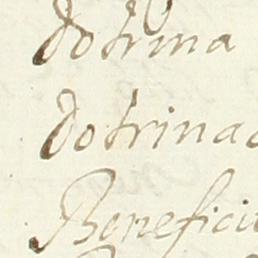 dotrina
dotrinad
Beneficio